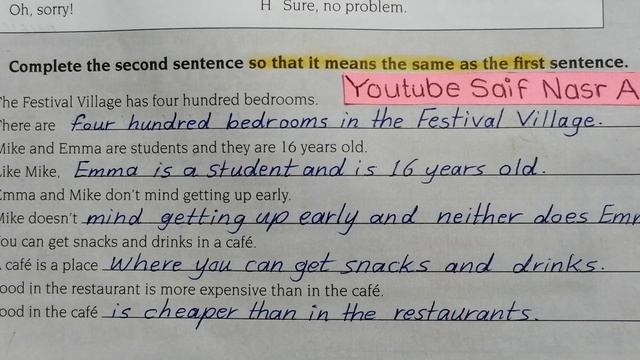 Oh, sorry!
H Sure, no problem.
Complete the second sentence so that it means the same as the first sentence.
Youtube Saif Nasr A
The Festival Village has four hundred bedrooms.
There are four hundred bedrooms in the Festival Village.
Mike and Emma are students and they are 16 years old.
Like Mike, Emma is a student and is 16 years old.
Emma and Mike don't mind getting up early.
Mike doesn't mind getting up early and neither does Emm
You can get snacks and drinks in a café.
café is a place where you can get snacks and drinks.
ood in the restaurant is more expensive than in the café.
ood in the café is cheaper than in the restaurants.